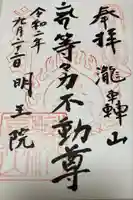 奉拝 瀧轉山
等身不動尊
令和二年
九月二十二日 明王院